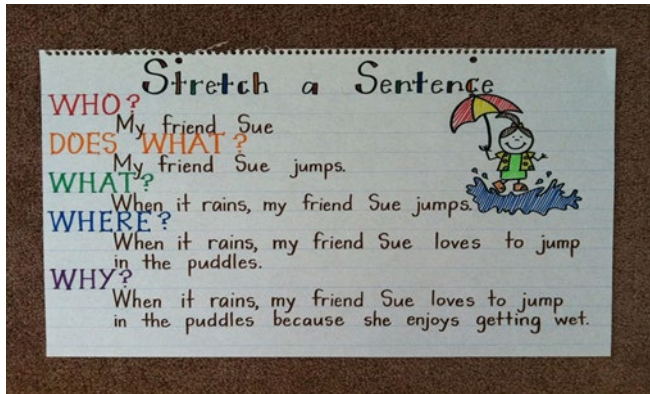 Stretch a Sentence
WHO?
My friend Sue
DOES WHAT?
My friend Sue jumps.
WHAT?
When it rains, my friend Sue jumps.
WHERE?
When it rains, my friend Sue loves to jump
in the puddles.
WHY?
When it rains, my friend Sue loves to jump
in the puddles because she enjoys getting wet.